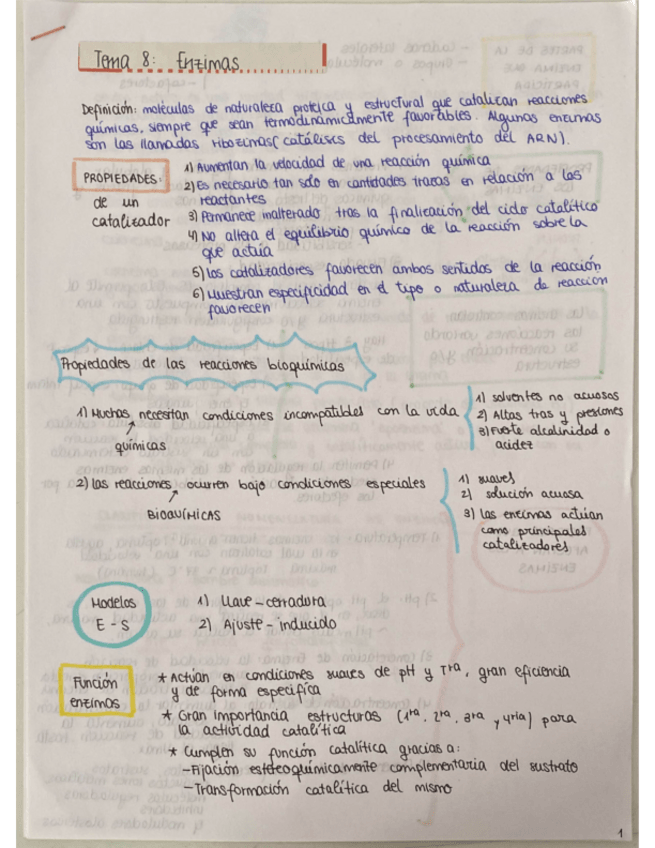 Tema 8: Enzimas
Definición: moléculas de naturaleza proteica y estructural que catalizan reacciones
químicas, siempre que sean termodinámicamente favorables. Algunas enzimas
son las llamadas ribozimas (catálisis del procesamiento del ARN).
PROPIEDADES:
de un
catalizador
1) Aumentan la velocidad de una reacción química
2) Es necesario tan solo en cantidades trazas en relación a los
reactantes
3) Permanece inalterado tras la finalización del ciclo catalítico
4) No altera el equilibrio químico de la reacción sobre la
que actúa
5) Los catalizadores favorecen ambos sentidos de la reacción
6) Muestran especificidad en el tipo o naturaleza de reacción
favorecen
Propiedades de las reacciones bioquímicas
1) Muchas necesitan condiciones incompatibles con la vida
químicas
1) solventes no acuosos
2) Altas tras y presiones
3) Fuerte alcalinidad o
acidez
2) las reacciones ocurren bajo condiciones especiales
BIOQUÍMICAS
1) suaves
2) solución acuosa
3) las enzimas actúan
como principales
catalizadores
Modelos
E - S
1) Llave - cerradura
2) Ajuste - inducido
Función
enzimas
* Actúan en condiciones suaves de pH y Tra, gran eficiencia
y de forma específica
* Gran importancia estructuras (1ra, 2ra, 3ra y 4ria) para
la actividad catalítica
* Cumplen su función catalítica gracias a:
- Fijación estereoquímicamente complementaria del sustrato
- Transformación catalítica del mismo
1